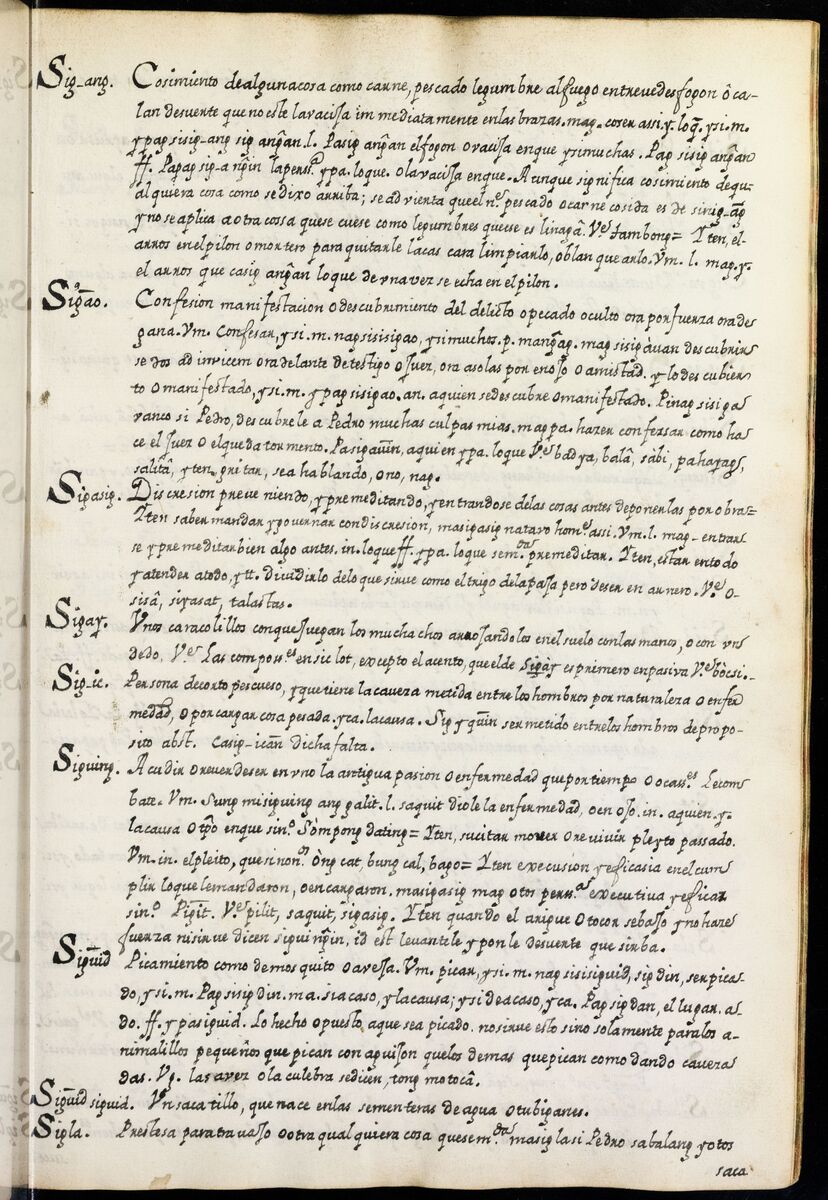 Sig-ang. Cosimiento de alguna cosa como carne, pescado legumbre al fuego entrevedes fogon ô ca-
lan desuerte que no este la vacissa immediatamente en las brazas. mag. coser assi. y. loq. y si. m.
y pag sisig-ang sig angãn. l. Pasig angãn el fogon o vacissa en que y si muchas. Pag sisig angãn
ff. Papag sig-angin la pens.ª y pa. loque. o la vacissa enque. Aunque significa cosimiento de qu-
alquiera cosa como se dixo arriba; se advierta que el n.e pescado o carne cosida es de sinig-ãg
y no se aplica a otra cossa que se cuese como legumbres que ese es linagâ. V.e tambong= Yten, el-
arros en el pilon o mortero para quitarle la cascara limpiarlo, o blanquearlo. Vm. l. mag. y.
el arros que casig angãn loque de una vez se echa en el pilon.
Sigao. Confesion manifestacion o descubrimiento del delicto o pecado oculto ora por fuerza ora de
gana. Vm. Confesar, y si. m. nag sisisigao, y si muchos. p. mangãg. mag sisigàuan descubrir
se dos ad invicem ora delante de testigo o Juez, ora a solas por enojo o amistad. y lo descubier
to o manifestado, y si. m. y pag sisigao. an. a quien se descubre o manifestado. Pinag sisiga
vanco si Pedro, descubrele a Pedro muchas culpas mias. magpa. hazer confessar como ha
ce el Juez o el que da tormento. Pasigauin, a quien y pa. loque V.e badya, balâ, sabi, pahayag,
salitâ, yten, gritar, sea hablando, o no, nag.
Sigasig. Discresion preveniendo, y premeditando, y entrandose de las cosas antes de ponerlas por obra=
Yten saber mandar y governar con discresion, masigasig na tavo hom.e assi. Vm. l. mag- entrar
se y premeditar bien algo antes. in. loque ff. y pa. loque sem.da premeditar. Yten, estar en todo
y atender a todo, y tt. dividirlo de lo que sirve como el trigo de la paja pero deser en arnero. V.e o-
sisâ, siyasat, talastas.
Sigay. Vnos caracolillos con que juegan los muchachos arrojandolos en el suelo con las manos, o con vn
dedo. V.e Las composs.es en sic lot, excepto el acento, que el de Sigày es primero en pasiva V.e bòcsi.
Sig-ic. Persona de corto pescueso, y que tiene la caveza metida entre los hombros por naturaleza o enfer
medad, o por cargar cosa pesada. y ca. la causa. Sig yquin ser metido entre los hombros de propo-
sito abst. Casig-ican dicha falta.
Siguing. Acudir o reverdeser en vno la antigua pasion o enfermedad que por tiempo o ocass.es le com
bate. Vm. Sungmisiguing ang galit. l. saquit diole la enfermedad, o enojo. in. a quien. y.
la causa o tpõ en que sin.o Sòmpong dating= Yten, sucitar mover o revivir pleyto passado.
Vm. in. el pleito, que si non.on Òng cat, bung cal, bago= Yten execusion y eficasia en el cum
plir lo que le mandaron, o encargaron. masigasig mag otos pers.a executiva y eficaz
sin.o Pigit. V.e pilit, saquit, sigasig. Yten quando el arigue o tocor se bajo y no haze
fuerza ni sirve dicen siguinguin, id est levantele y ponle desuerte que sirba.
Siguid Picamiento como de mosquito o aveja. Vm. picar, y si. m. nag sisisiguid, sigdin, ser pica-
do, y si. m. Pag sisigdin. ma. si acaso, y la causa; y si de acaso, y ca. Pag sigdan, el lugar. a-
do. ff. y pasiguid. Lo hecho o puesto, a que sea picado. no sirve esto sino solamente para los a-
nimalillos pequeños que pican con aguijon que los demas que pican como dando caveza
das. Vg. las avez o la culebra se dicen, tong motocâ.
Siguid siguid. Vn sacatillo, que nace en las sementeras de agua o tubiganes.
Sigla. Prestesa para travajo o otra qualquiera cosa que se m.da masigla si Pedro sa balang y otos
saca